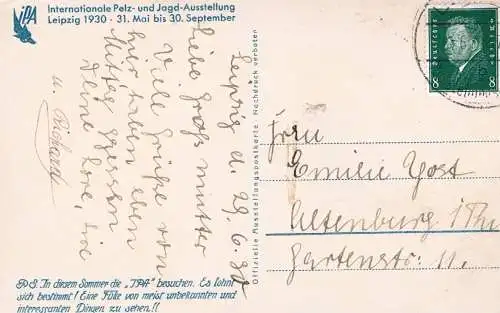 IPA
Internationale Pelz- und Jagd-Ausstellung
Leipzig 1930 · 31. Mai bis 30. September
Leipzig d. 29.6.30
Liebe Großmutter
Viele Grüße von
hier haben eben
Mittag gegessen
Deine Lore, die
u. Richard
P.S. In diesem Sommer die „IPA" besuchen. Es lohnt
sich bestimmt! Eine Fülle von meist unbekannten und
interessanten Dingen zu sehen!!
Offizielle Ausstellungspostkarte · Nachdruck verboten
Deutsches Reich
8 8
Frau
Emilie Yost
Altenburg i Thü
Gartenstr. 11.